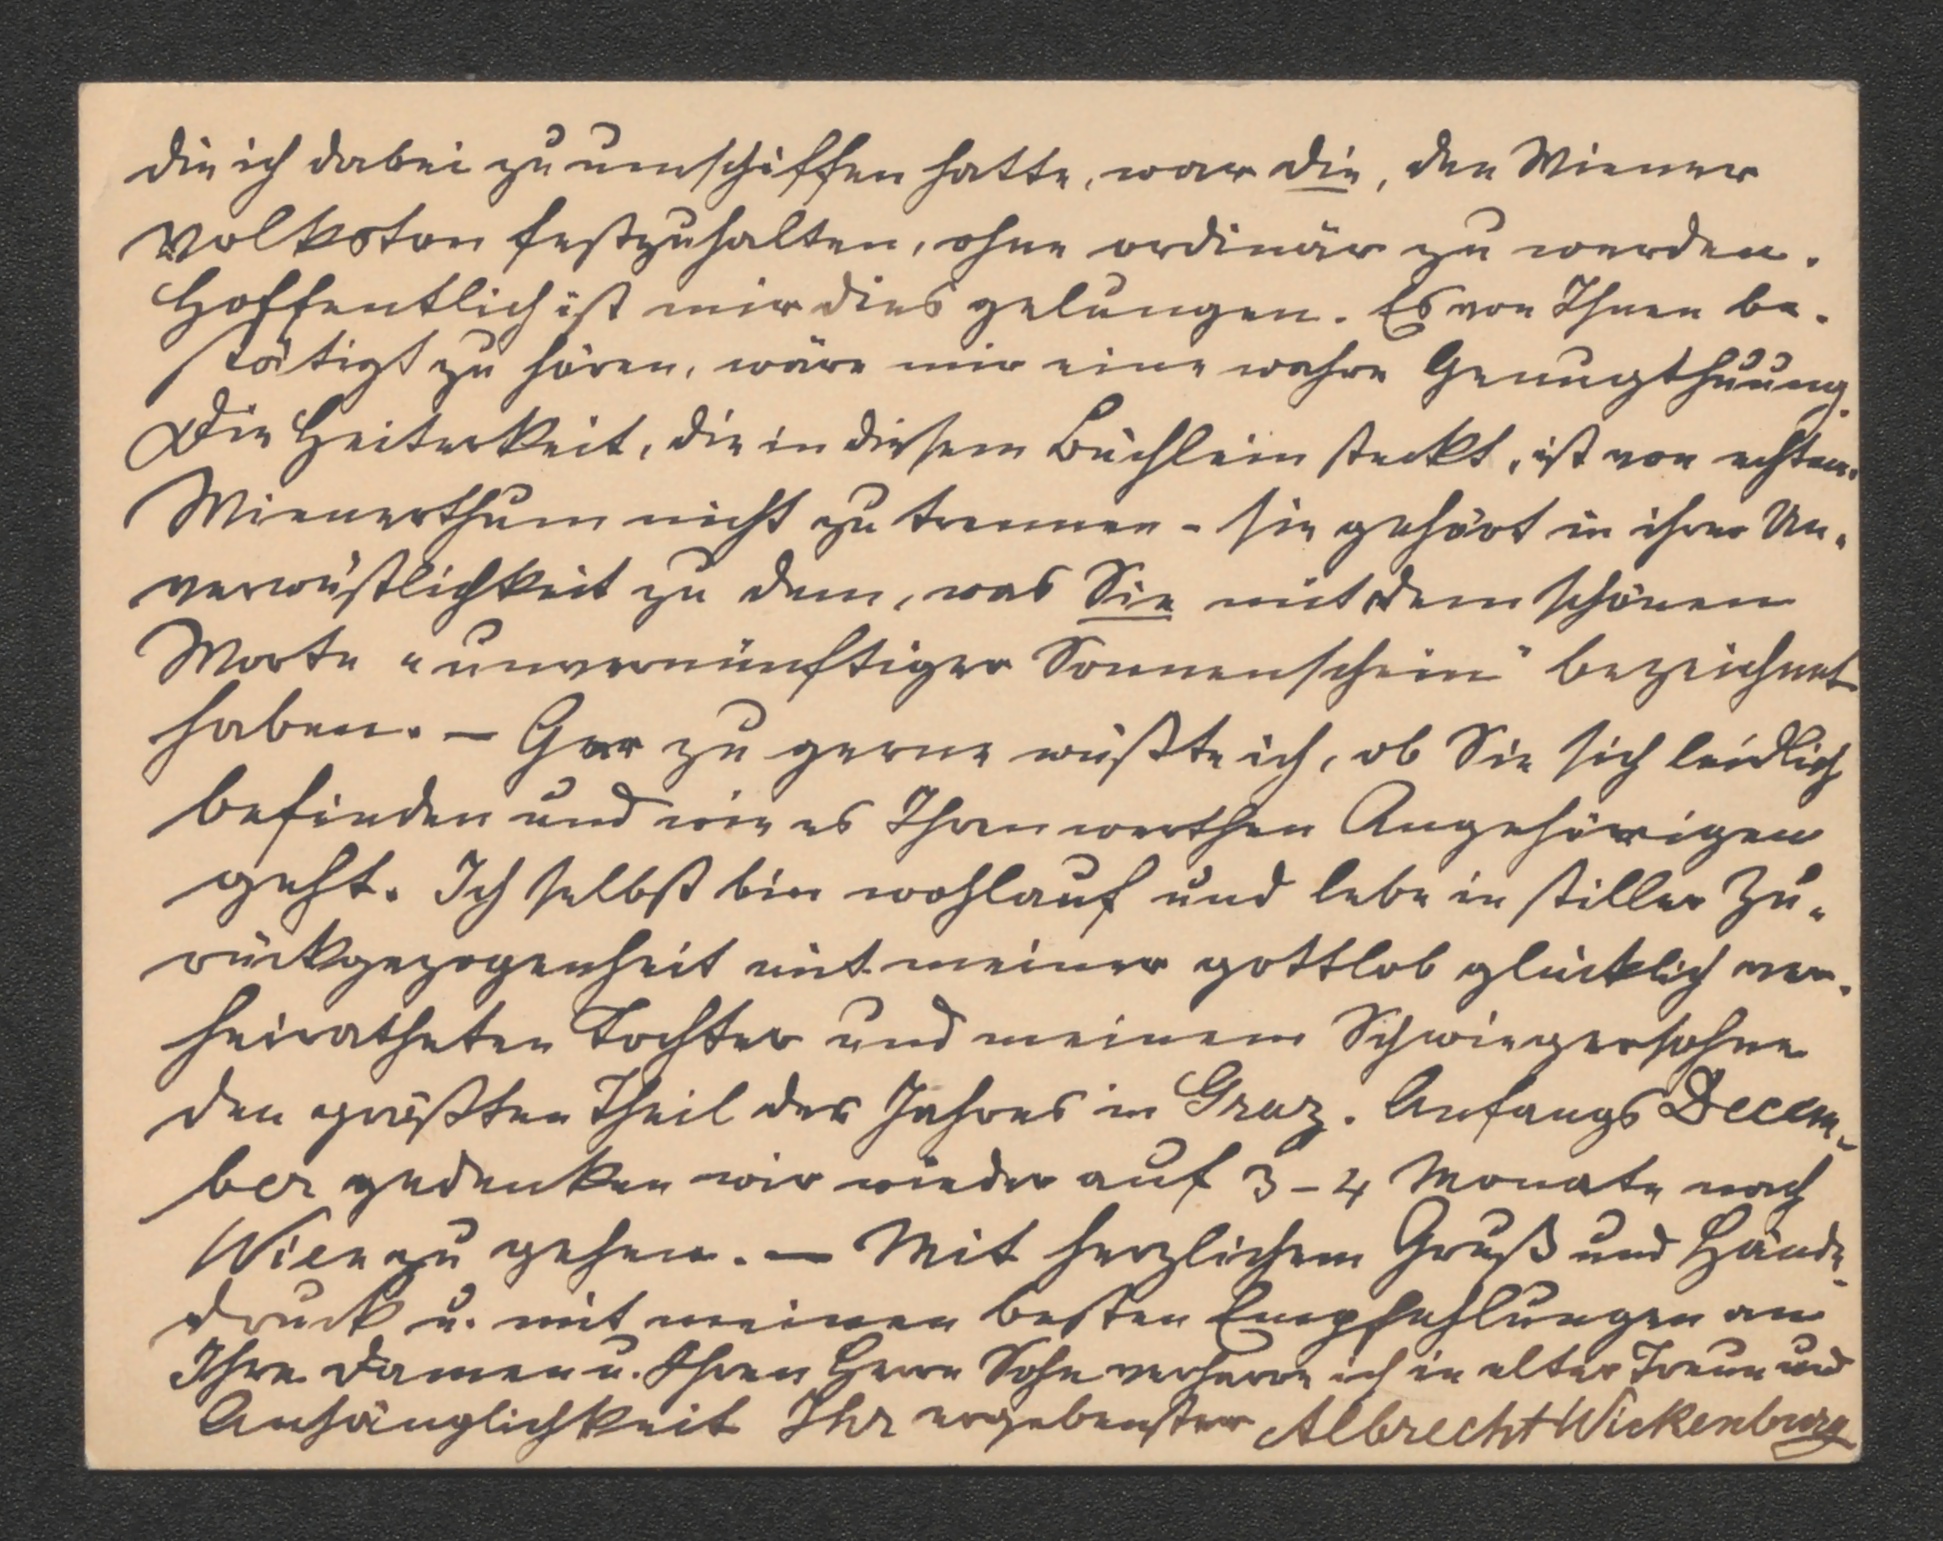 die ich dabei zu umschiffen hatte, war die, den Wiener
Volkston festzuhalten, ohne ordinär zu werden.
Hoffentlich ist mir dies gelungen. Es von Ihnen be-
stätigt zu hören, wäre mir eine wahre Genugthuung.
Die Heiterkeit, die in diesem Büchlein steckt, ist von echtem
Wienerthum nicht zu trennen - sie gehört in ihrer Un-
verwüstlichkeit zu dem, was Sie mit dem schönen
Worte "unvernünftiger Sonnenschein" bezeichnet
haben. — Gar zu gerne wüßte ich, ob Sie sich leidlich
befinden und wie es Ihren werthen Angehörigen
geht. Ich selbst bin wohlauf und lebe in stiller Zu-
rückgezogenheit mit meiner gottlob glücklich ver-
heiratheten Tochter und meinem Schwiegersohne
den größten Theil des Jahres in Graz. Anfangs Decem-
ber gedenken wir wieder auf 3-4 Monate nach
Wien zu gehen. — Mit herzlichem Gruß und Hände-
druck u. mit meinen besten Empfehlungen an
Ihre Damen u. Ihren Herrn Sohn verharre ich in alter Treue und
Anhänglichkeit Ihr ergebenster Albrecht Wickenburg